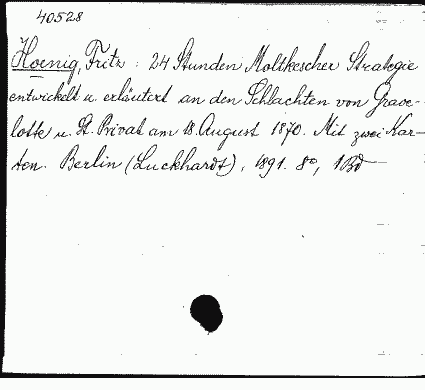 40528
Hoenig, Fritz : 24 Stunden Moltkescher Strategie
entwickelt u. erläutert an den Schlachten von Grave-
lotte u. St. Privat am 18. August 1870. Mit zwei Kar-
ten. Berlin (Luckhardt), 1891. 8°, 1 Bd